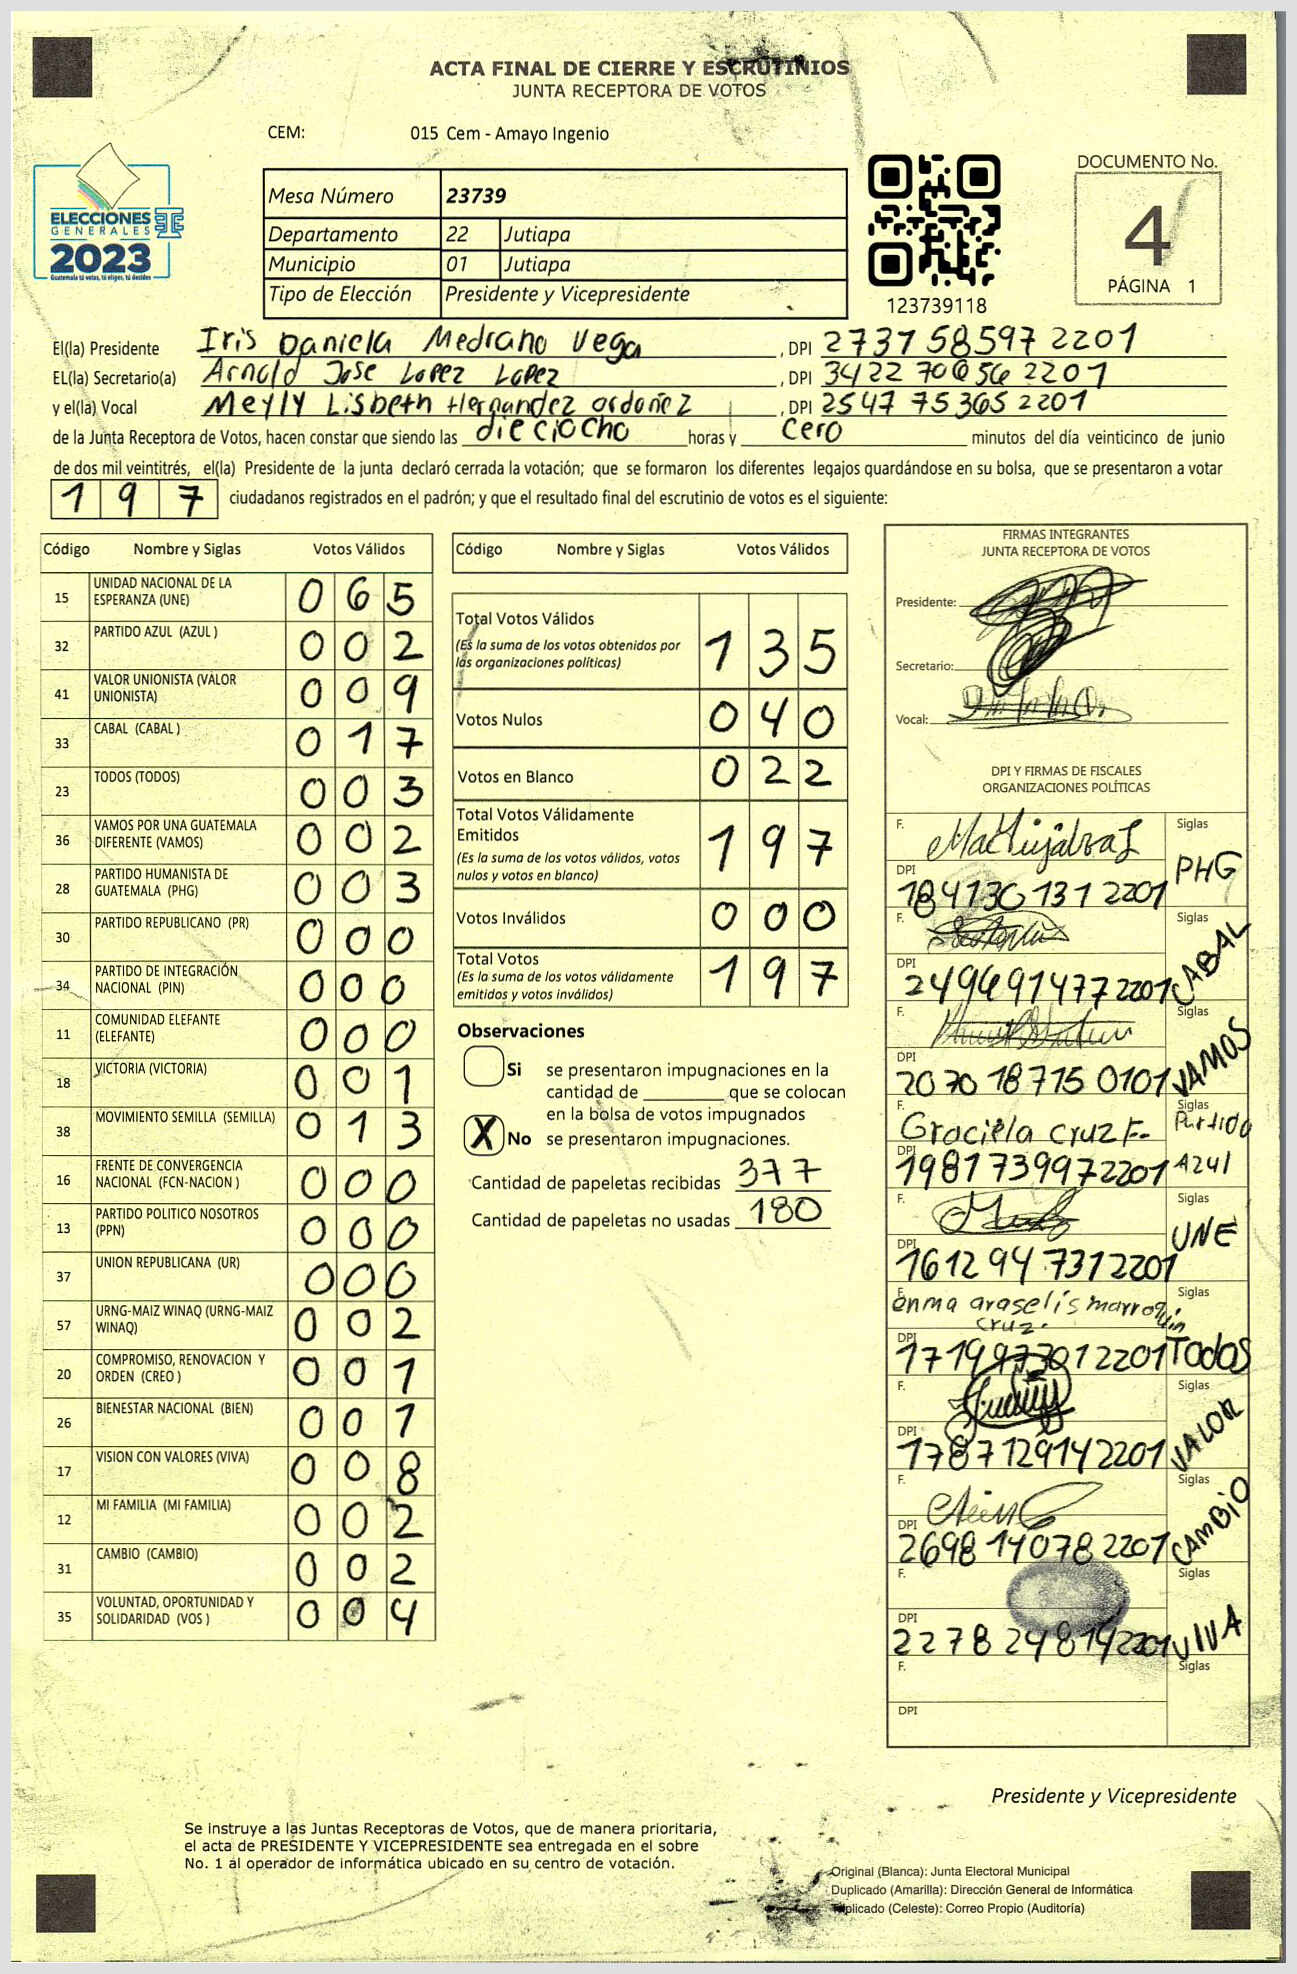 ACTA FINAL DE CIERRE Y ESCRUTINIOS
JUNTA RECEPTORA DE VOTOS
CEM: 015 Cem - Amayo Ingenio
ELECCIONES
GENERALES
2023
Guatemala tú votas, tú eliges, tú decides
Mesa Número 23739
Departamento 22 Jutiapa
Municipio 01 Jutiapa
Tipo de Elección Presidente y Vicepresidente
123739118
DOCUMENTO No.
4
PÁGINA 1
El(la) Presidente Iris Daniela Medrano Vega , DPI 2737 58597 2201
EL(la) Secretario(a) Arnold Jose Lopez Lopez , DPI 3422 70656 2201
y el(la) Vocal Meyly Lisbeth Hernandez ordoñez , DPI 2547 75365 2201
de la Junta Receptora de Votos, hacen constar que siendo las dieciocho horas y cero minutos del día veinticinco de junio
de dos mil veintitrés, el(la) Presidente de la junta declaró cerrada la votación; que se formaron los diferentes legajos guardándose en su bolsa, que se presentaron a votar
197 ciudadanos registrados en el padrón; y que el resultado final del escrutinio de votos es el siguiente:
Código Nombre y Siglas Votos Válidos
15 UNIDAD NACIONAL DE LA ESPERANZA (UNE) 065
32 PARTIDO AZUL (AZUL ) 002
41 VALOR UNIONISTA (VALOR UNIONISTA) 009
33 CABAL (CABAL ) 017
23 TODOS (TODOS) 003
36 VAMOS POR UNA GUATEMALA DIFERENTE (VAMOS) 002
28 PARTIDO HUMANISTA DE GUATEMALA (PHG) 003
30 PARTIDO REPUBLICANO (PR) 000
34 PARTIDO DE INTEGRACIÓN NACIONAL (PIN) 000
11 COMUNIDAD ELEFANTE (ELEFANTE) 000
18 VICTORIA (VICTORIA) 001
38 MOVIMIENTO SEMILLA (SEMILLA) 013
16 FRENTE DE CONVERGENCIA NACIONAL (FCN-NACION ) 000
13 PARTIDO POLITICO NOSOTROS (PPN) 000
37 UNION REPUBLICANA (UR) 000
57 URNG-MAIZ WINAQ (URNG-MAIZ WINAQ) 002
20 COMPROMISO, RENOVACION Y ORDEN (CREO ) 001
26 BIENESTAR NACIONAL (BIEN) 001
17 VISION CON VALORES (VIVA) 008
12 MI FAMILIA (MI FAMILIA) 002
31 CAMBIO (CAMBIO) 002
35 VOLUNTAD, OPORTUNIDAD Y SOLIDARIDAD (VOS ) 004
Código Nombre y Siglas Votos Válidos
Total Votos Válidos 135
(Es la suma de los votos obtenidos por
las organizaciones políticas)
Votos Nulos 040
Votos en Blanco 022
Total Votos Válidamente
Emitidos 197
(Es la suma de los votos válidos, votos
nulos y votos en blanco)
Votos Inválidos 000
Total Votos 197
(Es la suma de los votos válidamente
emitidos y votos inválidos)
Observaciones
Si se presentaron impugnaciones en la
cantidad de ________ que se colocan
en la bolsa de votos impugnados
X No se presentaron impugnaciones.
Cantidad de papeletas recibidas 377
Cantidad de papeletas no usadas 180
FIRMAS INTEGRANTES
JUNTA RECEPTORA DE VOTOS
Presidente:
Secretario:
Vocal:
DPI Y FIRMAS DE FISCALES
ORGANIZACIONES POLÍTICAS
F. Siglas PHG
DPI 184130131 2201
F. Siglas CABAL
DPI 2496914772201
F. Siglas VAMOS
DPI 2070 18715 0101
F. Graciela Cruz F. Siglas Partido Azul
DPI 1981739972201
F. Siglas UNE
DPI 1612 94 7312201
F. enma araselis marroquin cruz. Siglas Todos
DPI 1719973012201
F. Siglas VALOR
DPI 1787129142201
F. Siglas CAMBIO
DPI 2698 14078 2201
F. Siglas VIVA
DPI 2278 24814 2201
F. Siglas
DPI
Presidente y Vicepresidente
Se instruye a las Juntas Receptoras de Votos, que de manera prioritaria,
el acta de PRESIDENTE Y VICEPRESIDENTE sea entregada en el sobre
No. 1 al operador de informática ubicado en su centro de votación.
Original (Blanca): Junta Electoral Municipal
Duplicado (Amarilla): Dirección General de Informática
Triplicado (Celeste): Correo Propio (Auditoría)